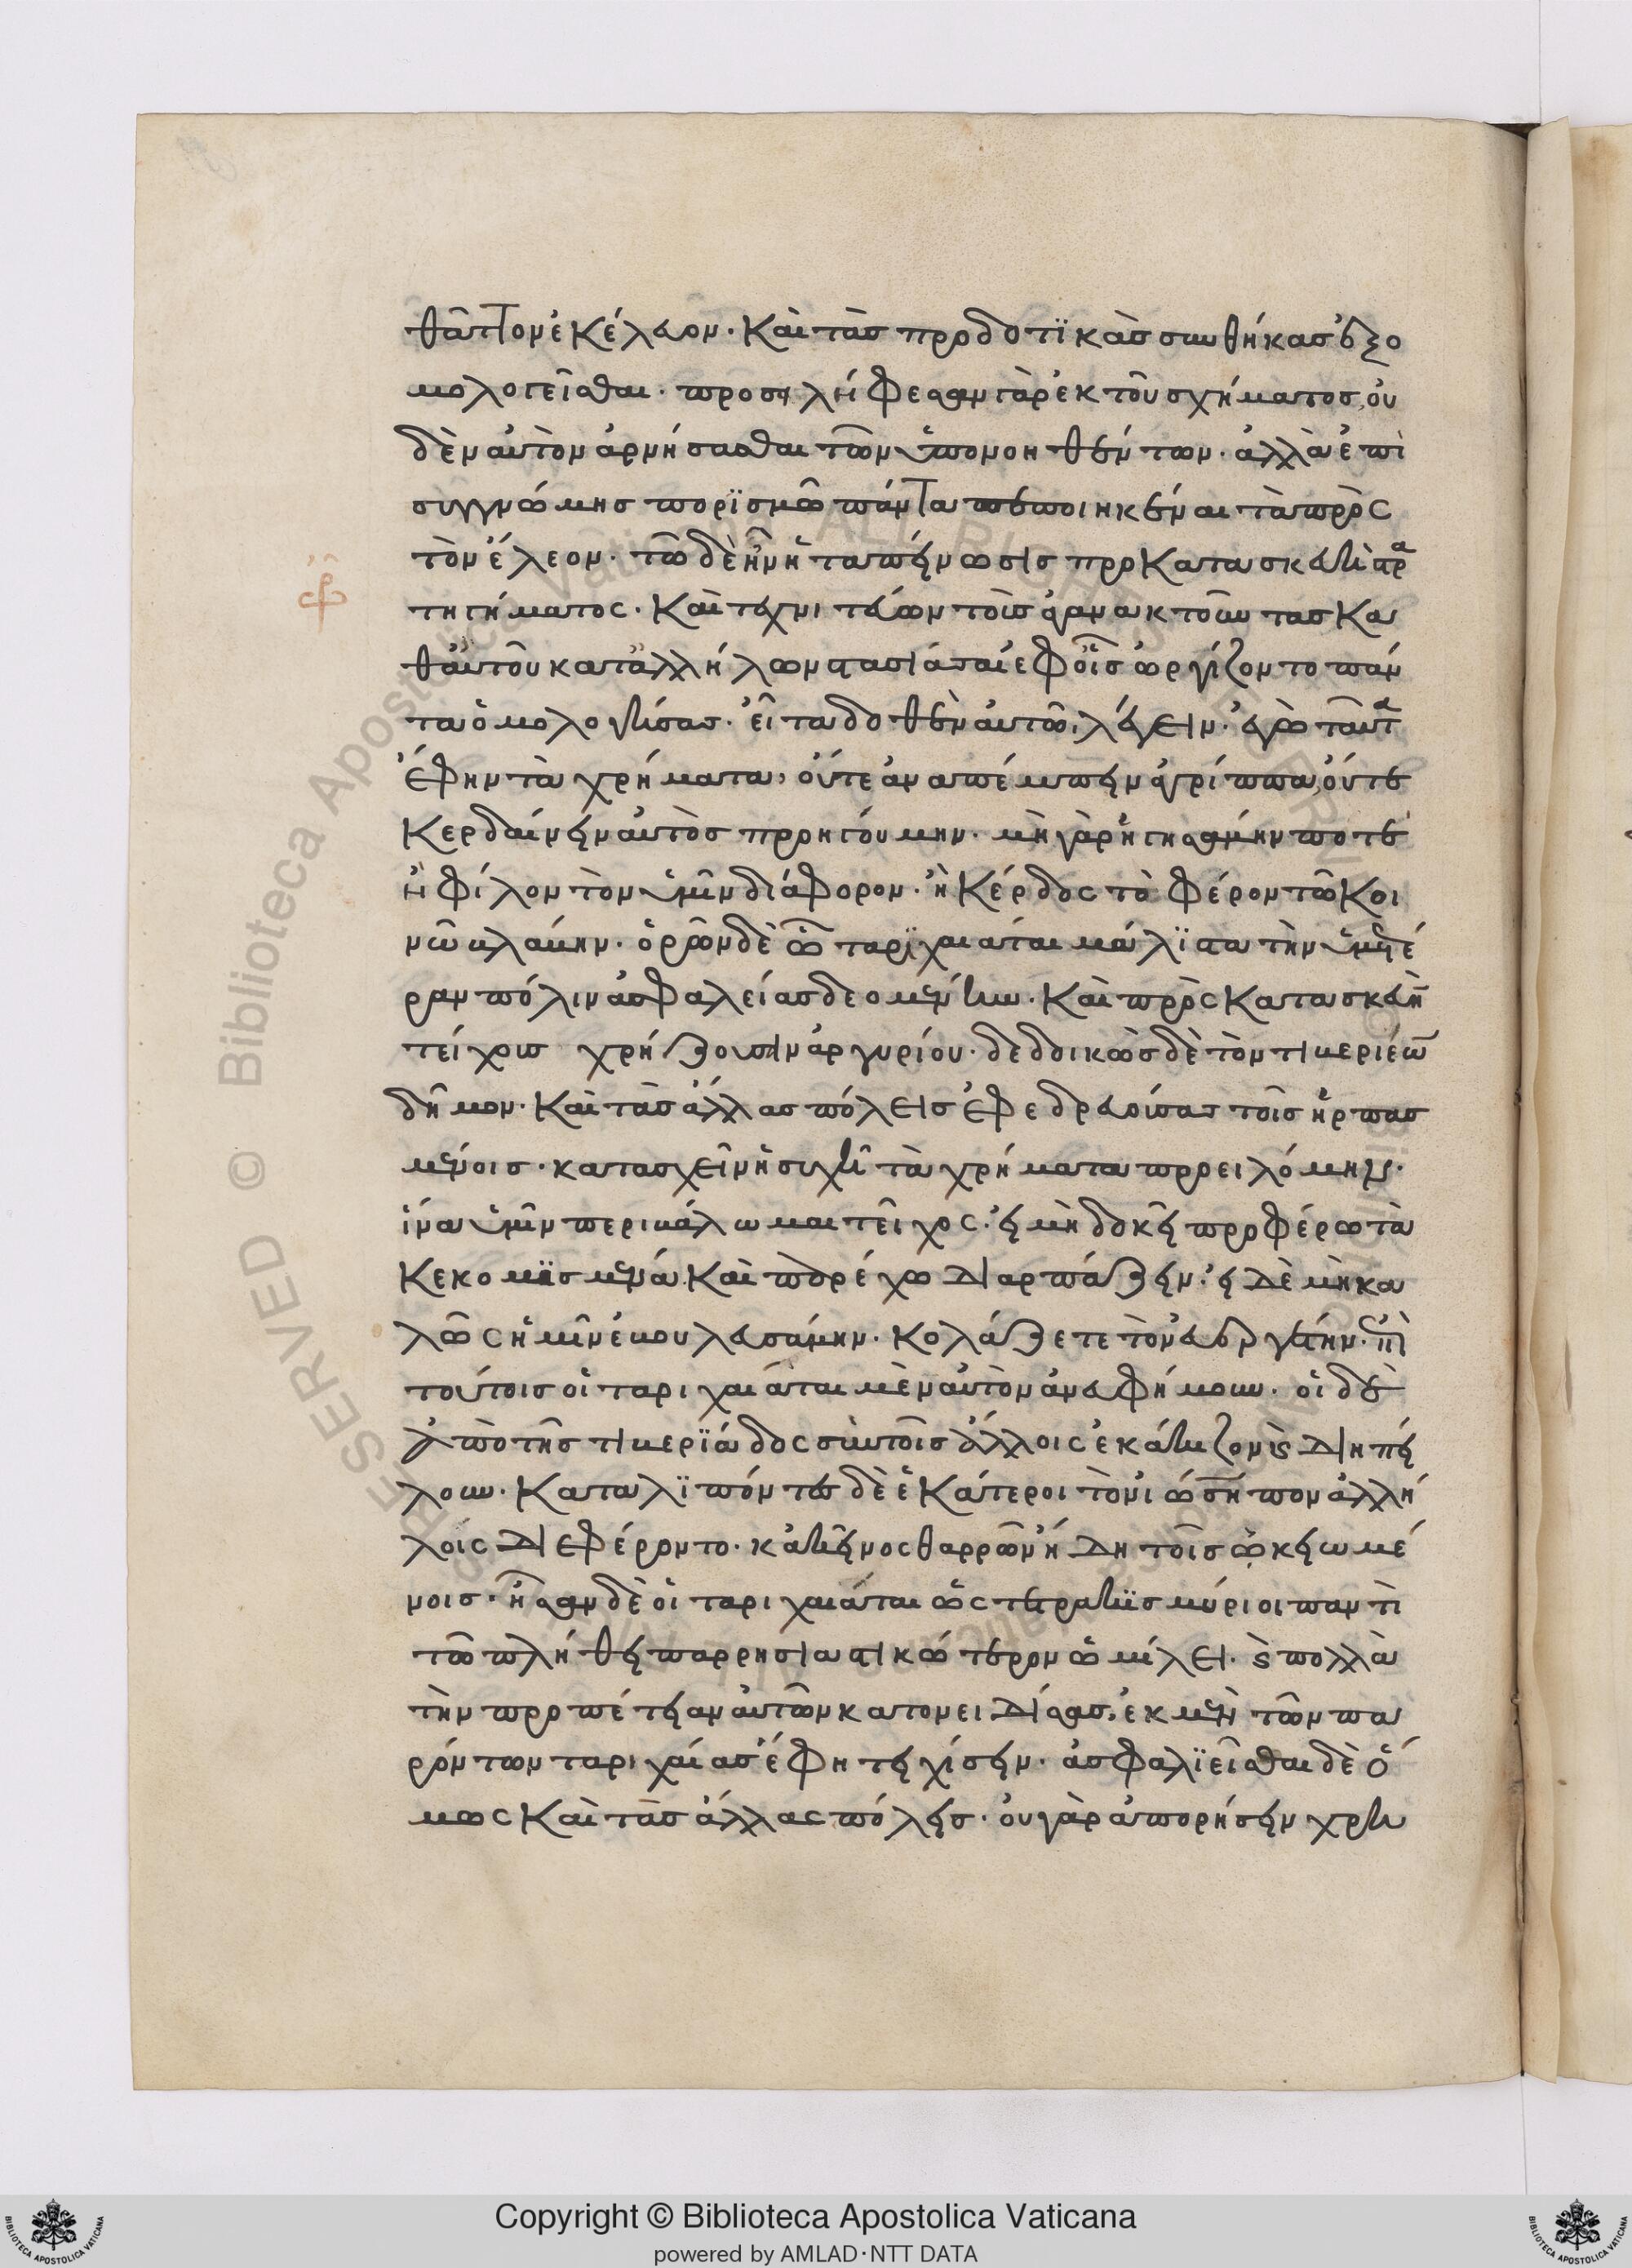 θᾶττον ἐκέλευον. καὶ τὰς προδοτϊκὰς συνθήκας ἐξο
μολογεῖσθαι. προσειλήφεσαν γὰρ ἐκ τοῦ σχήματος, οὐ
δὲν αὐτὸν ἀρνήσασθαι τῶν ὑπονοηθέντων. ἀλλὰ ἐπὶ
συγγνώμης πορϊσμῶ πάντα πεποιηκέναι τὰ πρὸς
τὸν ἔλεον. τῶ δὲ ἦν ἡ ταπείνωσις προκατασκευὴ στρα
τηγήματος. καὶ τεχνιτεύων τοὺς ἀγανακτοῦντας κα
θ' αὐτοῦ κατ' ἀλλήλων στασιάσαι ἐφ' οἷς ὠργίζοντο πάν
τα ὁμολογήσας. εἶτα δοθὲν αὐτῶ, λέγειν. ἐγὼ ταῦτα
ἔφην τὰ χρήματα, οὔτε ἀναπέμπειν ἀγρίππα, οὔτε
κερδαίνειν αὐτὸς προηγούμην. μὴ γὰρ ἡγησαίμην ποτὲ
ἢ φίλον τὸν ὑμῖν διάφορον. ἢ κέρδος τὸ φέρον τῶ κοι
νῶ βλάβην. ὁρῶν δὲ ὦ ταρϊχαιᾶται μάλϊστα τὴν ὑμετέ
ραν πόλιν ἀσφαλείας δεομένην. καὶ πρὸς κατασκευὴν
τείχους χρήζουσαν ἀργυρίου. δεδοικὼς δὲ τὸν τιβεριέων
δῆμον. καὶ τὰς ἄλλας πόλεις ἐφεδρευούσας τοῖς ἡρπασ
μένοις. κατασχεῖν ἡσυχῆ τὰ χρήματα προειλόμην.
ἵνα ὑμῖν περιβάλωμαι τεῖχος. εἰ μὴ δοκεῖ προφέρω τὰ
κεκομϊσμένα. καὶ παρέχω διαρπάζειν. εἰ δὲ μὴ κα
λῶς ὑμῖν ἐβουλευσάμην. κολάζετε τὸν εὐεργέτην. ἐπὶ
τούτοις οἱ ταριχαιᾶται μὲν αὐτὸν ἀνευφήμουν. οἱ δὲ
ἀπὸ τῆς τιβερϊάδος σὺν τοῖς ἄλλοις ἐκάκιζον καὶ διηπεί
λουν. καταλϊπόντες δὲ ἑκάτεροι τὸν ἰώσηπον ἀλλή
λοις διεφέροντο. κἀκεῖνος θαρρῶν ἤδη τοῖς ὠκειωμέ
νοις. ἦσαν δὲ οἱ ταριχαιᾶται ὡς τετρακϊσμύριοι παντὶ
τῶ πλήθει παρρησιαστικώτερον ὡμίλει. καὶ πολλὰ
τὴν προπέτειαν αὐτῶν κατονειδίσας, ἐκ μὲν τῶν πα
ρόντων ταριχαίας ἔφη τειχίσειν. ἀσφαλϊεῖσθαι δὲ ὁ
μως καὶ τὰς ἄλλας πόλεις. οὐ γὰρ ἀπορήσειν χρη